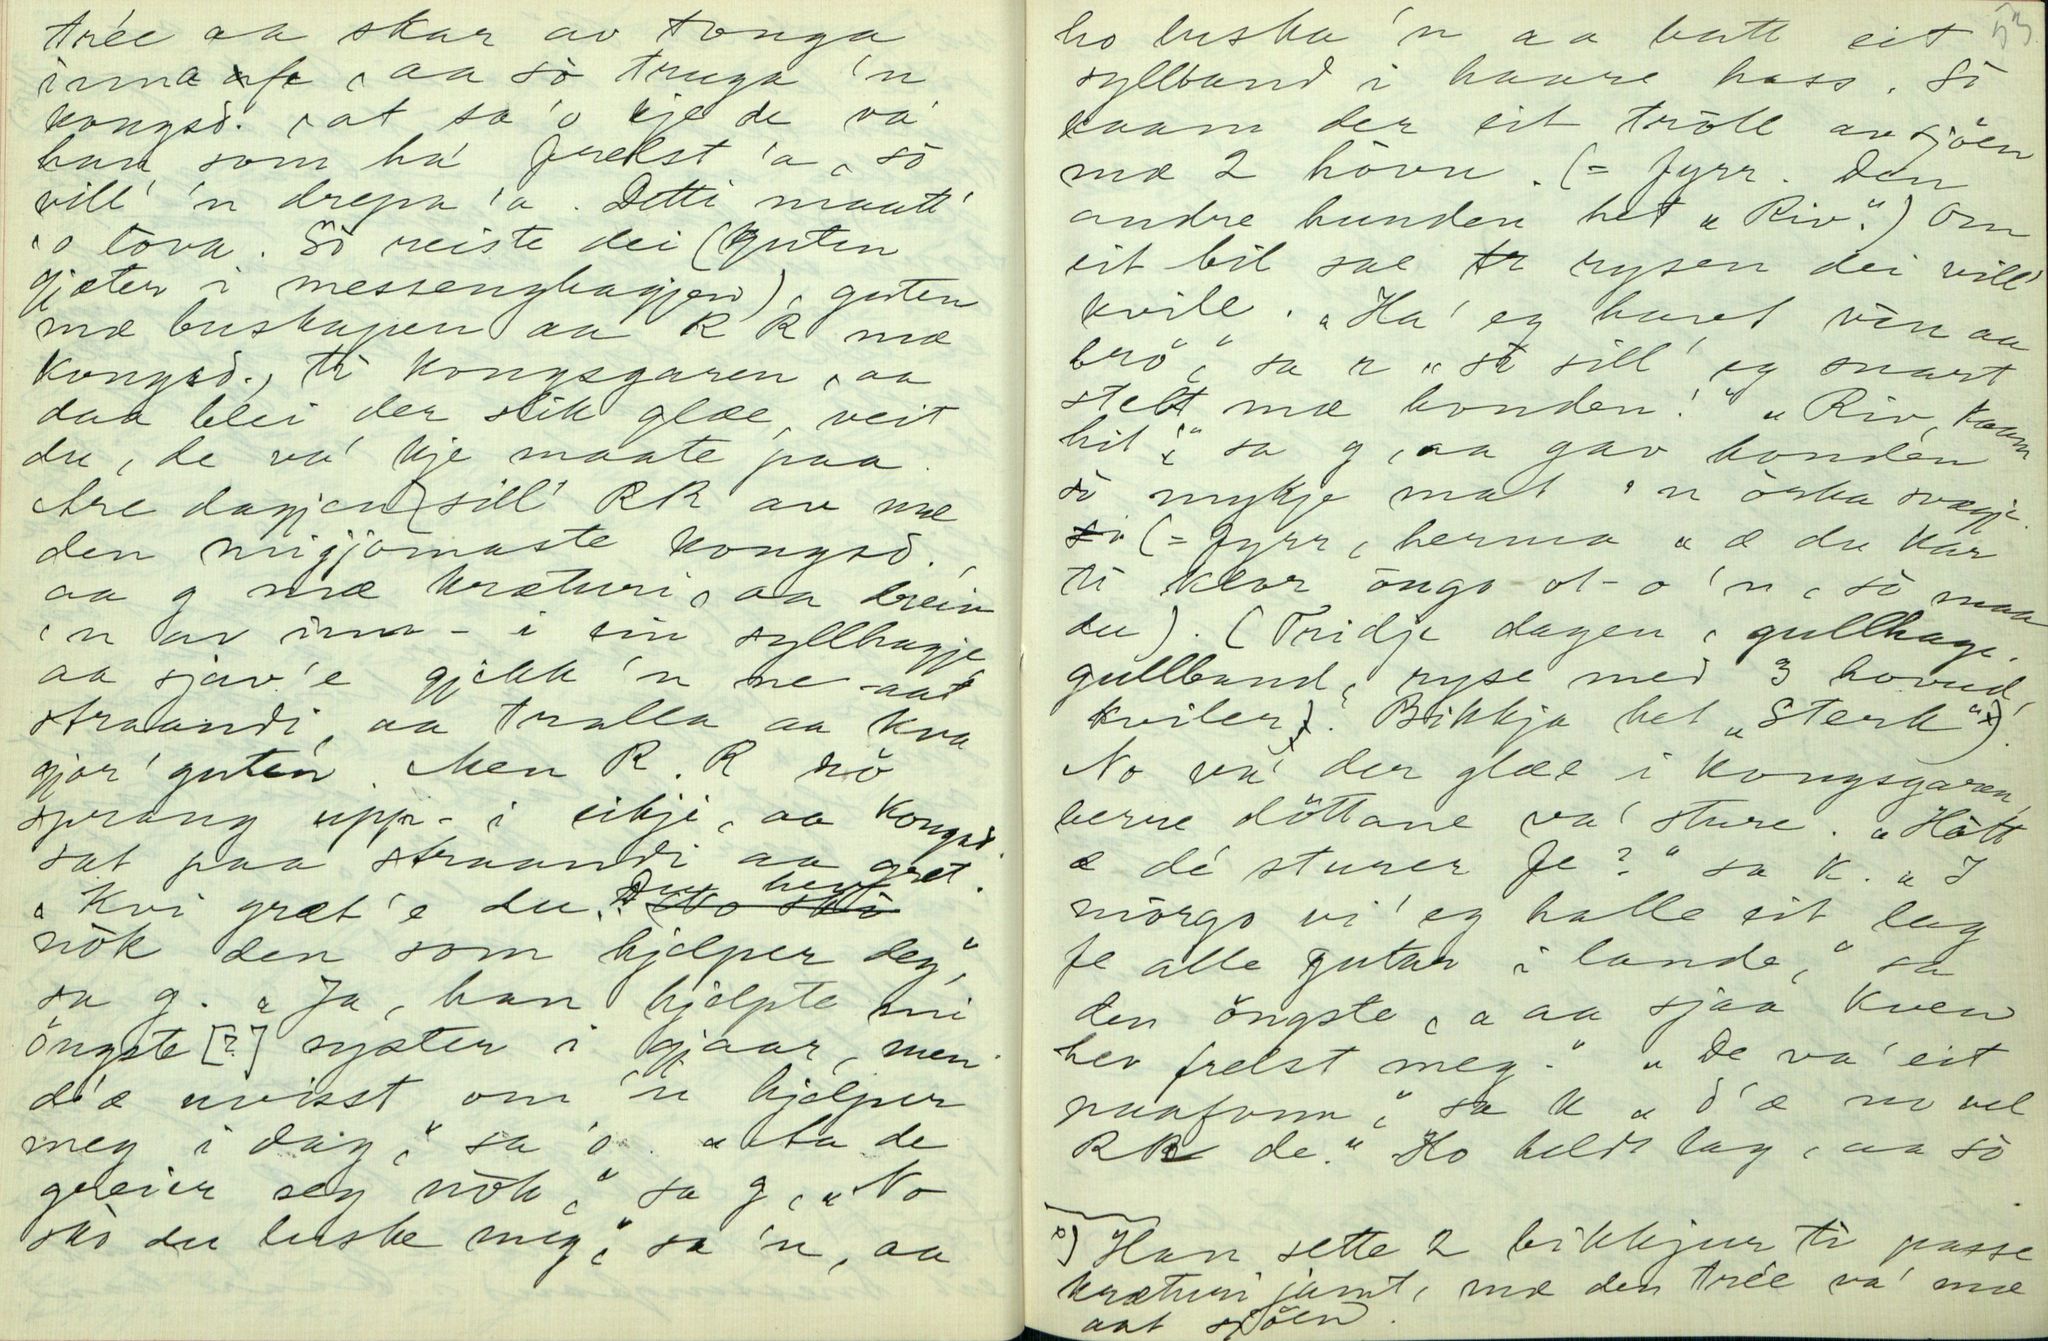 trée aa skar av tonga
inna, aa sò truga 'n
kongsd. at sa 'o kje de va'
han som ha' frelst 'a, sò
vill' 'n drepa 'a. Detti maatt'
'o lova. Sò reiste dei (guten
gjæter i messenghagjen), guten
mæ buskapen aa R R mæ
kongsd., ti kongsgaren, aa
daa blei der slik glæe, veit
du, de va' kje maate paa.
Are dagjen sill' RR av mæ
den migjomaste kongsd.,
aa g mæ kræturi, aa dreiv
'n av inn- i ein syllhagje
aa sjav'e gjekk 'n ne-aat
straandi, aa tralla aa kva
gjor' guten. Men R.R nò
sprang upp- i eikji, aa kongsd.
sat paa straandi aa græt.
"Kvi græt'e du? Du hev
nòk den som hjelper deg",
sa g. "Ja, han hjelpte mi
öngste [?] syster i gjaar, men
d'æ uvisst om 'n hjelper
meg i dag," sa 'o. "Aa de
greier seg nòk," sa g, "No
skò du luske meg," sa 'n, aa
53
ho luska 'n aa batt eit
syllband i haare hass. Sò
kaam der eit tròll av sjöen
mæ 2 hòvu. (= fyrr. Den
andre hunden het "Riv".) Om
eit bil sae rysen dei vill'
kvile. "Ha' eg havt vin aa
brö," sa r "sò sill' eg snart
stelt mæ honden!" "Riv, kaam
hit," sa g, aa gav honden
sò mykje mat 'n òrka svagje.
(= fyrr, herma "æ du kar
ti klor öngo ot-o 'n, sò maa
du). (Tridje dagen, gullhage,
gullband, ryse med 3 hovud,
kviler. Bikkja het "Sterk" x).
No va' der glæe i kongsgaren,
berre döttane va' sture. "Hòtt
æ de' sturer fe?" sa k. "I
mòrgo vi' eg halle eit lag
fe alle gutar i lande," sa
den öngste, "aa sjaa kven
hev frelst meg." "De va' eit
paafonn," sa k "d'æ no vel
RR de." Ho heldt lag, aa sò
x) Han sette 2 bikkjur ti passe
kræturi jamt, mæ den trée va' mæ
aat sjöen.